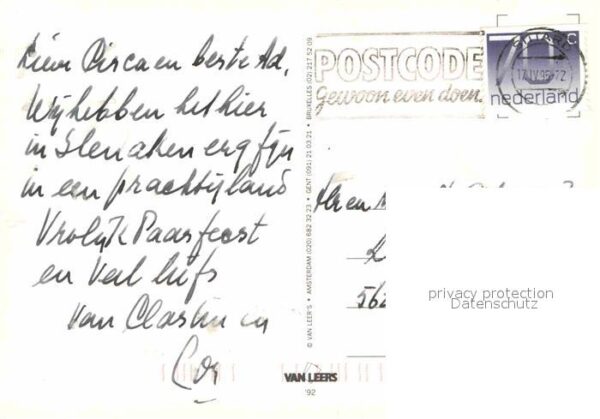 Lieve Circa en beste Ad,
Wij hebben het hier
in Slenaken erg fijn
in een prachtig land
Vrolijk Paasfeest
en veel liefs
van Clastin en
Cor
POSTCODE
Gewoon even doen.
SITTARD
17.IV.95-12
c
nederland
© VAN LEER'S • AMSTERDAM (020) 682 32 23 • GENT (091) 21 03 21 • BRUXELLES (02) 217 52 09
562
privacy protection
Datenschutz
VAN LEERS
'92